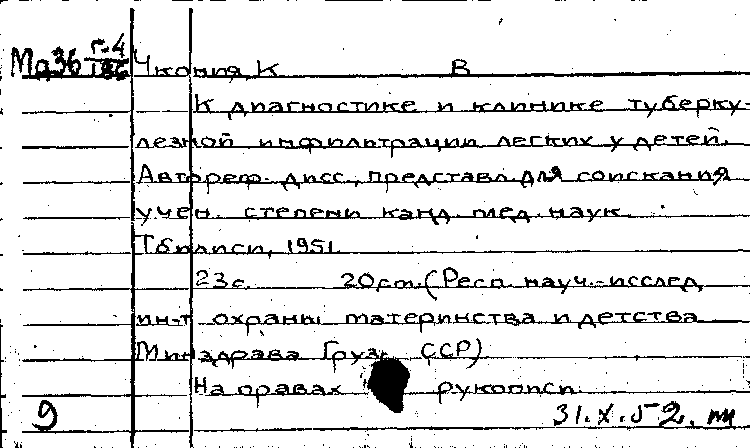 Мд36 Г-4/136 Чкония, К В
К диагностике и клинике туберку-
лезной инфильтрации легких у детей.
Автореф. дисс., представл. для соискания
учен. степени канд. мед. наук.
Тбилиси, 1951.
23с. 20см. (Респ. науч.-исслед.
ин-т охраны материнства и детства
Минздрава Груз. ССР)
На правах рукописи.
9 31.X.52.